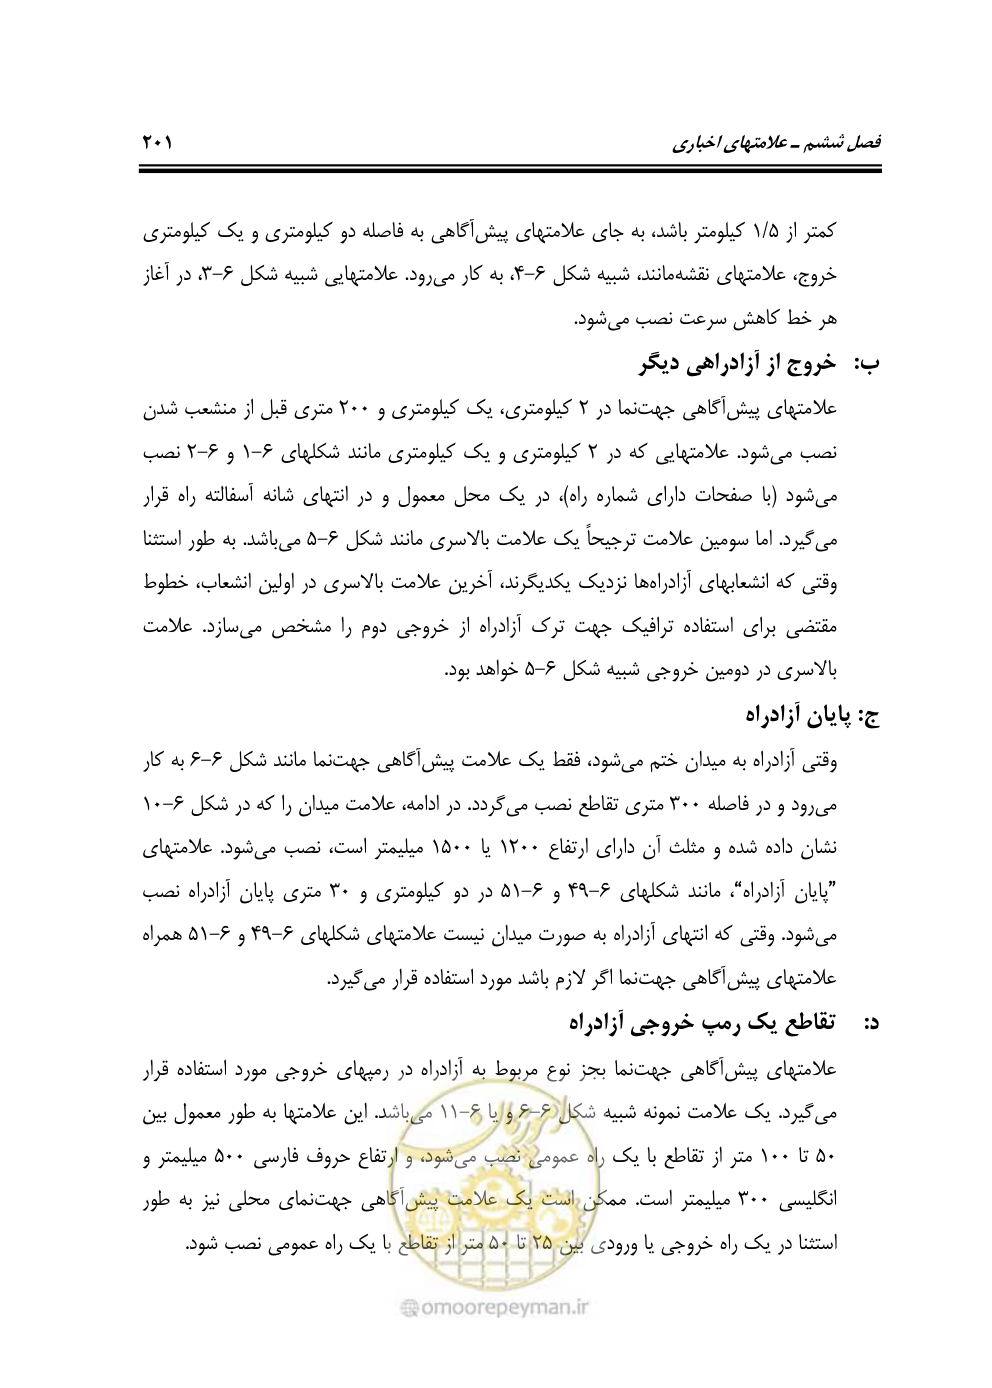 فصل ششم ـ علامتهای اخباری ۲۰۱
کمتر از ۱/۵ کیلومتر باشد، به جای علامتهای پیش‌آگاهی به فاصله دو کیلومتری و یک کیلومتری
خروج، علامتهای نقشه‌مانند، شبیه شکل ۶-۴، به کار می‌رود. علامتهایی شبیه شکل ۶-۳، در آغاز
هر خط کاهش سرعت نصب می‌شود.
ب: خروج از آزادراهی دیگر
علامتهای پیش‌آگاهی جهت‌نما در ۲ کیلومتری، یک کیلومتری و ۲۰۰ متری قبل از منشعب شدن
نصب می‌شود. علامتهایی که در ۲ کیلومتری و یک کیلومتری مانند شکلهای ۶-۱ و ۶-۲ نصب
می‌شود (با صفحات دارای شماره راه)، در یک محل معمول و در انتهای شانه آسفالته راه قرار
می‌گیرد. اما سومین علامت ترجیحاً یک علامت بالاسری مانند شکل ۶-۵ می‌باشد. به طور استثنا
وقتی که انشعابهای آزادراه‌ها نزدیک یکدیگرند، آخرین علامت بالاسری در اولین انشعاب، خطوط
مقتضی برای استفاده ترافیک جهت ترک آزادراه از خروجی دوم را مشخص می‌سازد. علامت
بالاسری در دومین خروجی شبیه شکل ۶-۵ خواهد بود.
ج: پایان آزادراه
وقتی آزادراه به میدان ختم می‌شود، فقط یک علامت پیش‌آگاهی جهت‌نما مانند شکل ۶-۶ به کار
می‌رود و در فاصله ۳۰۰ متری تقاطع نصب می‌گردد. در ادامه، علامت میدان را که در شکل ۶-۱۰
نشان داده شده و مثلث آن دارای ارتفاع ۱۲۰۰ یا ۱۵۰۰ میلیمتر است، نصب می‌شود. علامتهای
”پایان آزادراه“، مانند شکلهای ۶-۴۹ و ۶-۵۱ در دو کیلومتری و ۳۰ متری پایان آزادراه نصب
می‌شود. وقتی که انتهای آزادراه به صورت میدان نیست علامتهای شکلهای ۶-۴۹ و ۶-۵۱ همراه
علامتهای پیش‌آگاهی جهت‌نما اگر لازم باشد مورد استفاده قرار می‌گیرد.
د: تقاطع یک رمپ خروجی آزادراه
علامتهای پیش‌آگاهی جهت‌نما بجز نوع مربوط به آزادراه در رمپهای خروجی مورد استفاده قرار
می‌گیرد. یک علامت نمونه شبیه شکل ۶-۶ و یا ۶-۱۱ می‌باشد. این علامتها به طور معمول بین
۵۰ تا ۱۰۰ متر از تقاطع با یک راه عمومی نصب می‌شود، و ارتفاع حروف فارسی ۵۰۰ میلیمتر و
انگلیسی ۳۰۰ میلیمتر است. ممکن است یک علامت پیش‌آگاهی جهت‌نمای محلی نیز به طور
استثنا در یک راه خروجی یا ورودی بین ۲۵ تا ۵۰ متر از تقاطع با یک راه عمومی نصب شود.
امور پیمان
@omoorepeyman.ir